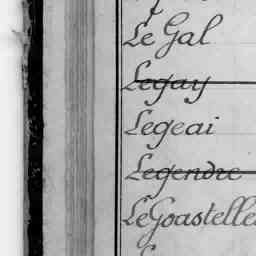 Le Gal
Legay
Legeai
Legendre
Le Goastelle